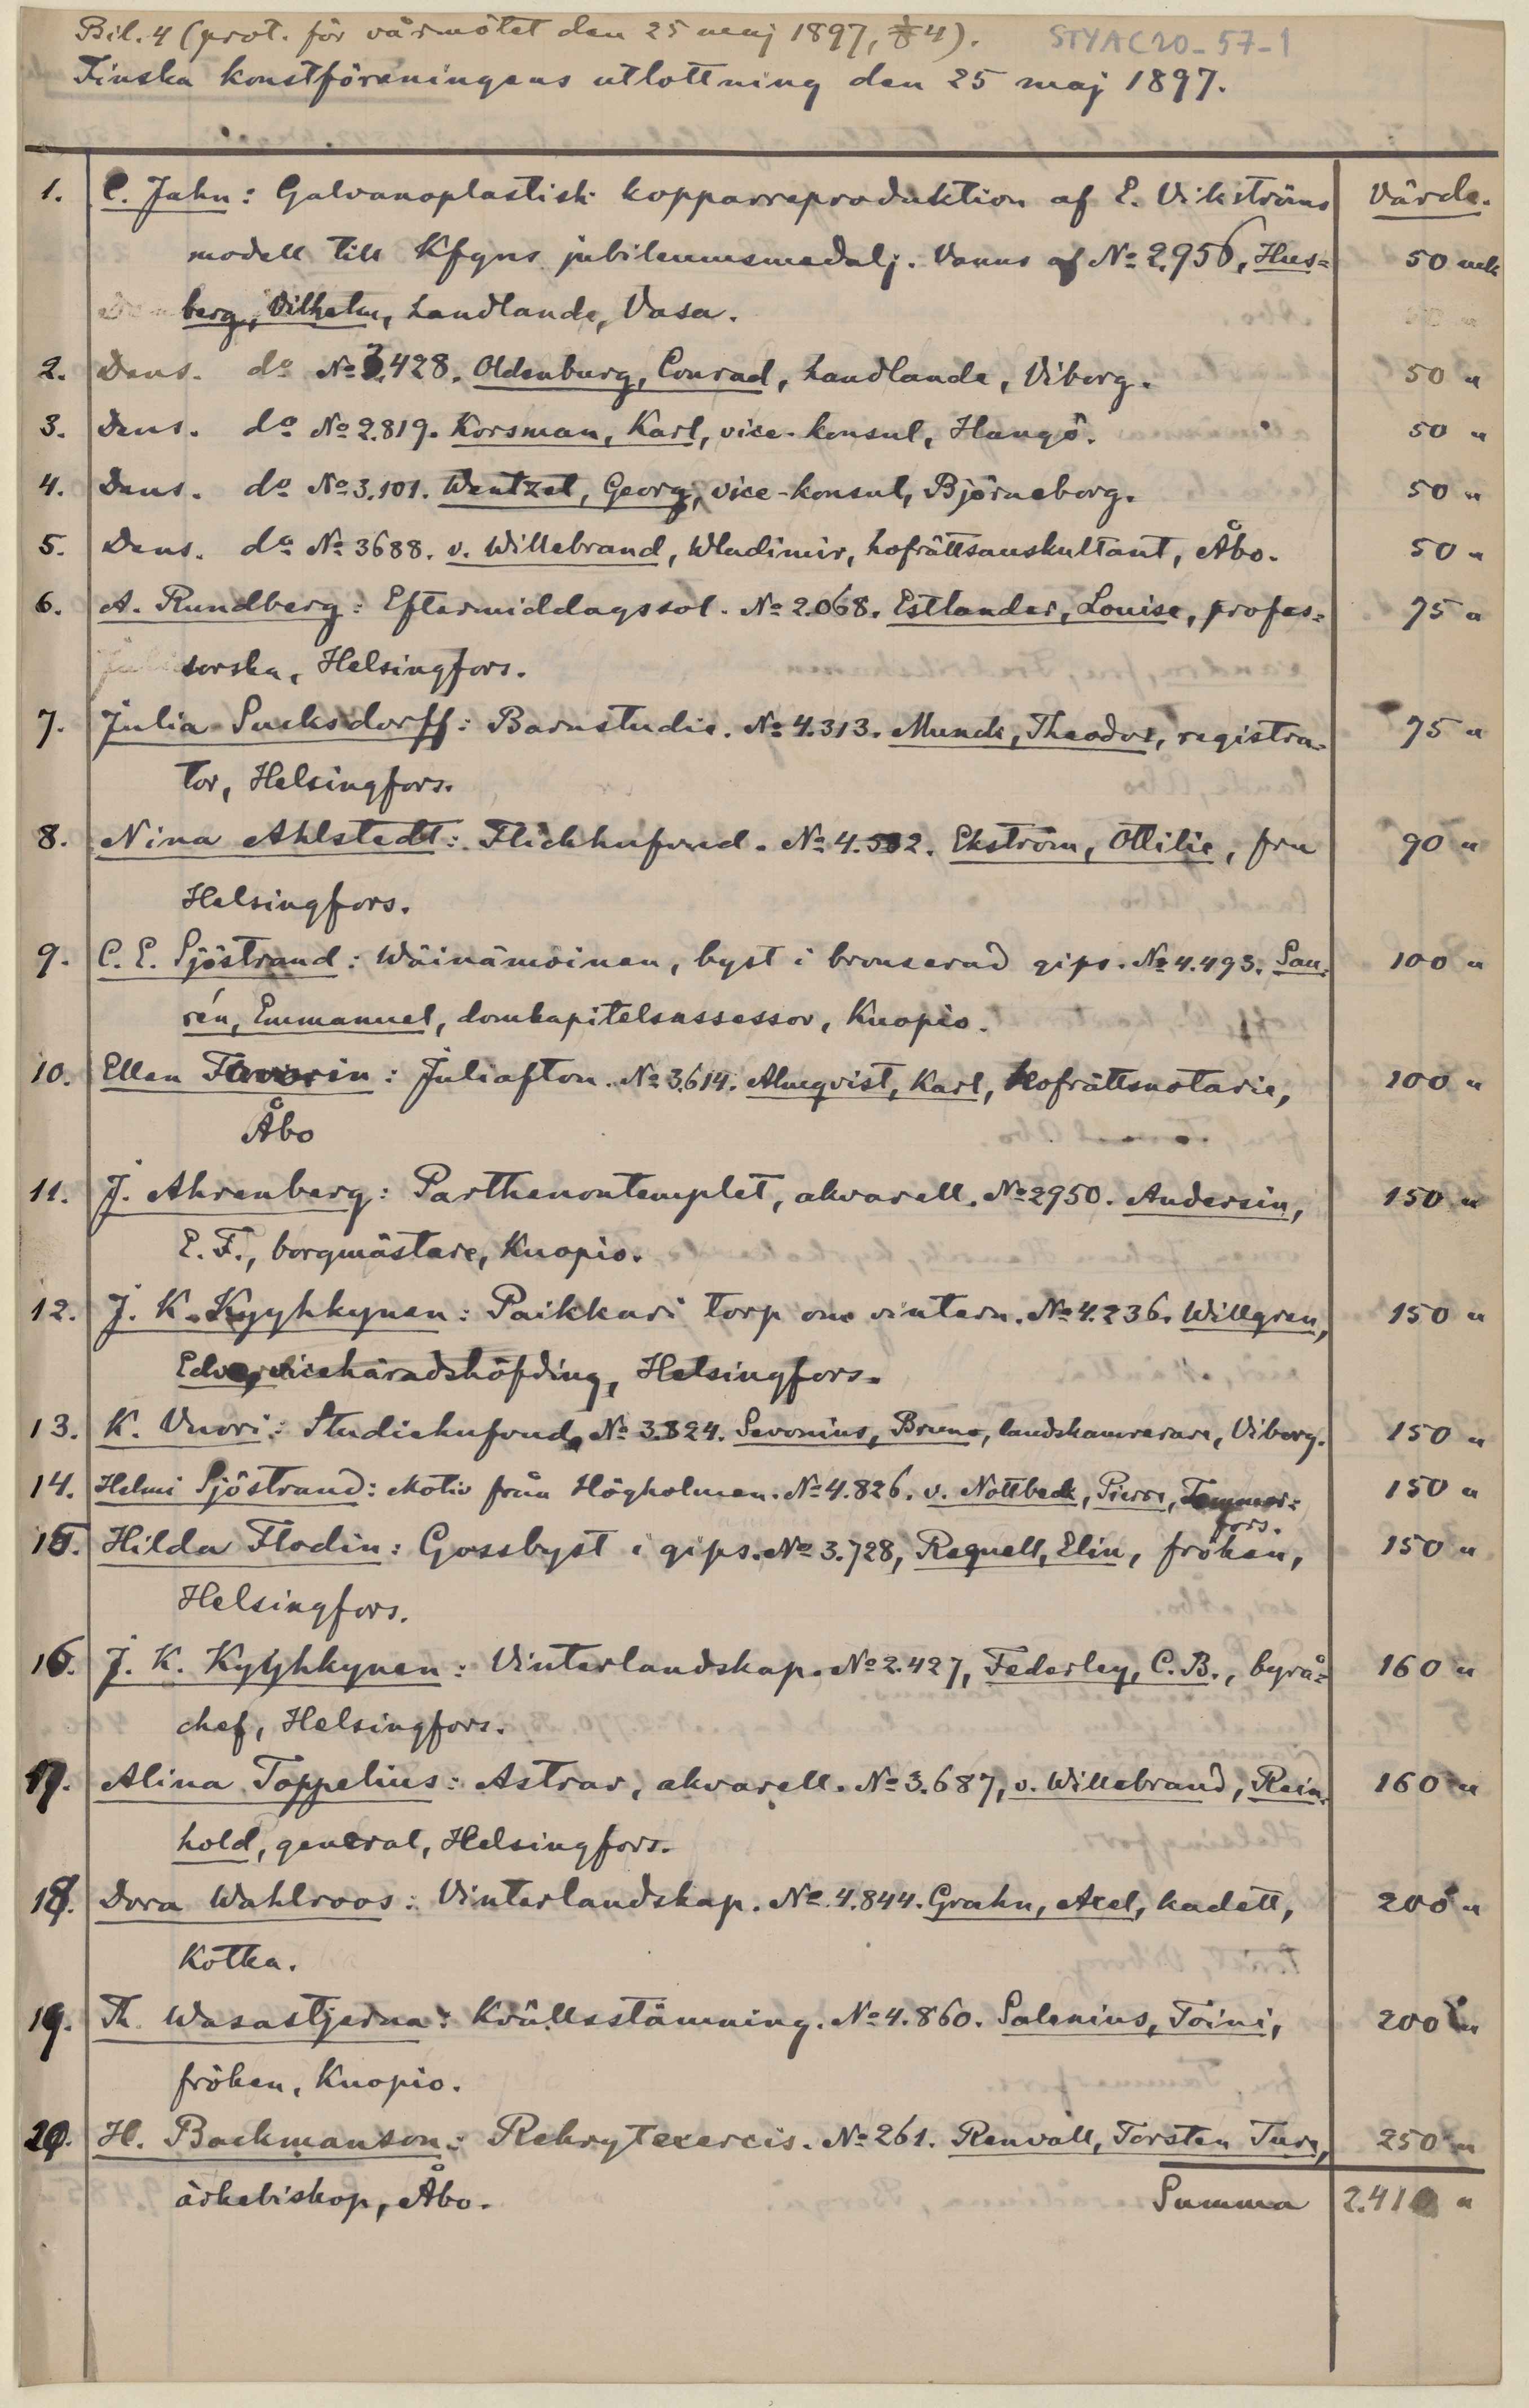 Bil. 4 (prot. för vårmötet den 25 maj 1897, § 4). STYAC20-57-1
Finska konstföreningens utlottning den 25 maj 1897.
1. C. Jahn: Galvanoplastisk kopparreproduktion af E. Vikströms Värde.
modell till Kfgns jubileumsmedalj. Vanns af No 2.956, Hus= 50 mk
berg, Vilhelm, handlande, Vasa.
2. Dens. do No 3.428. Oldenburg, Conrad, handlande, Viborg. 50 "
3. Dens. do No 2.819. Korsman, Karl, vice-konsul, Hangö. 50 "
4. Dens. do No 3.101. Wentzel, Georg, vice-konsul, Björneborg. 50 "
5. Dens. do No 3688. v. Willebrand, Wladimir, hofrättsauskultant, Åbo. 50 "
6. A. Rundberg: Eftermiddagssol. No 2.068. Estlander, Louise, profes= 75 "
sorska, Helsingfors.
7. Julia Sucksdorff: Barnstudie. No 4.313. Munck, Theodor, registra= 75 "
tor, Helsingfors.
8. Nina Ahlstedt: Flickhufvud. No 4.502. Ekström, Ottilie, fru 90 "
Helsingfors.
9. C. E. Sjöstrand: Wäinämöinen, byst i bronserad gips. No 4.493. Sau= 100 "
rén, Emmanuel, domkapitelsassessor, Kuopio.
10. Ellen Favorin: Juliafton. No 3.614. Almqvist, Karl, Hofrättsnotarie, 100 "
Åbo
11. J. Ahrenberg: Parthenontemplet, akvarell. No 2950. Andersin, 150 "
E. F., borgmästare, Kuopio.
12. J. K. Kyyhkynen: Paikkari torp om vintern. No 4.236. Willgren, 150 "
Edv., vicehäradshöfding, Helsingfors.
13. K. Vuori: Studiehufvud, No 3.824. Savonius, Bruno, landskamrerare, Viborg. 150 "
14. Helmi Sjöstrand: Motiv från Högholmen. No 4.826. v. Nottbeck, Pierre, Tammer= 150 "
fors.
15. Hilda Flodin: Gossbyst i gips. No 3.728, Regnell, Elin, fröken, 150 "
Helsingfors.
16. J. K. Kyyhkynen: Vinterlandskap. No 2.427, Federley, C. B., byrå= 160 "
chef, Helsingfors.
17. Alina Toppelius: Astrar, akvarell. No 3.687, v. Willebrand, Rein= 160 "
hold, general, Helsingfors.
18. Dora Wahlroos: Vinterlandskap. No 4.844. Grahn, Axel, kadett, 200 "
Kotka.
19. Th. Wasastjerna: Kvällsstämning. No 4.860. Salenius, Toini, 200 "
fröken, Kuopio.
20. H. Backmanson: Rekrytexercis. No 261. Renvall, Torsten Ture, 250 "
ärkebiskop, Åbo. Summa 2.410 "